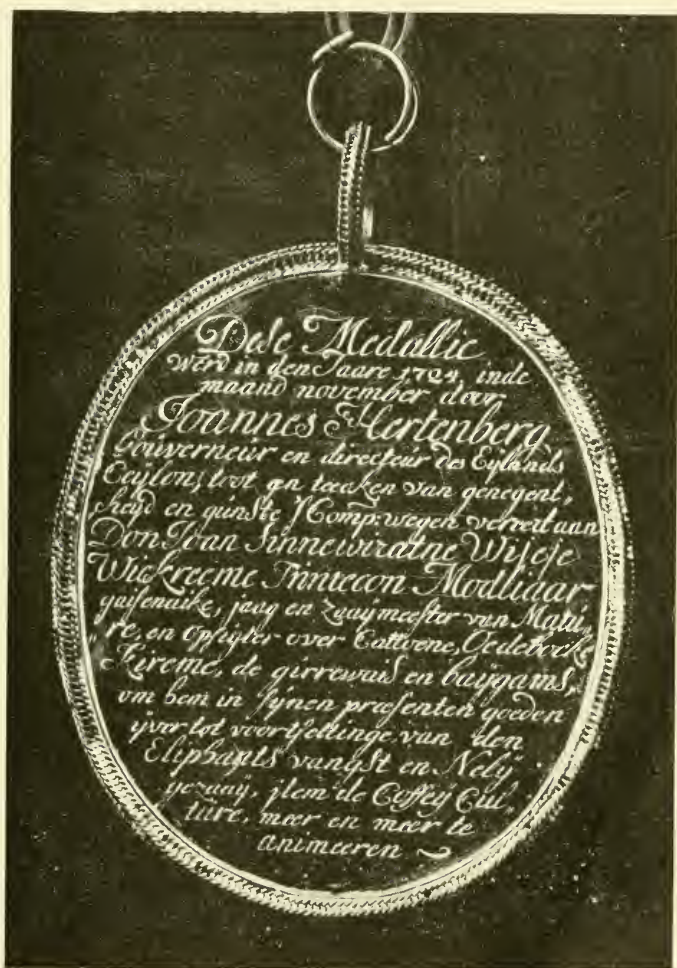 Dese Medallie
werd in den Jaare 1724 inde
maand november door
Joannes Hertenberg
Gouverneur en directeur des Eylands
Ceylons, toot en teeken van genegent„
heyd en gunste s'Comp: wegen vereert aan
Don Joan Sinnewiratne Wijeje
Wickreeme Modliaar
gaijenaike, jaag en zaaymeester van Matu„
„re, en opsigter over Cattoene, Oedebocke
Kireme, de girrewais en baijgams,
om hem in sijnen præsenten goeden
ijver tot voortsettinge van den
Eliphants vangst en Nely
gezaaij, item de Coffeij Cul„
ture, meer en meer te
animeeren